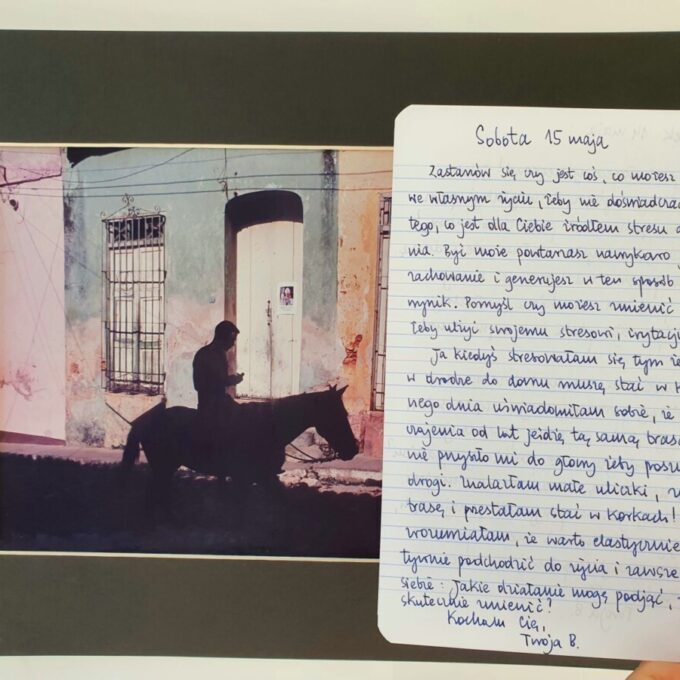 Sobota 15 maja
Zastanów się, czy jest coś, co możesz
we własnym życiu, żeby nie doświadczać
tego, co jest dla Ciebie źródłem stresu
nia. Być może powtarzasz nawykowo
zachowanie i generujesz w ten sposób
wynik. Pomyśl czy możesz zmienić
żeby ulżyć swojemu stresowi,
Ja kiedyś stresowałam się tym że
w drodze do domu muszę stać w
nego dnia uświadomiłam sobie, że
od lat jeżdżę tą samą trasą
nie przyszło mi do głowy żeby
drogi. Znalazłam małe uliczki,
trasę i przestałam stać w korkach!
zrozumiałam, że warto elastycznie
tywnie podchodzić do życia i zawsze
siebie: Jakie działanie mogę podjąć,
skutecznie zmienić?
Kocham Cię,
Twoja B.